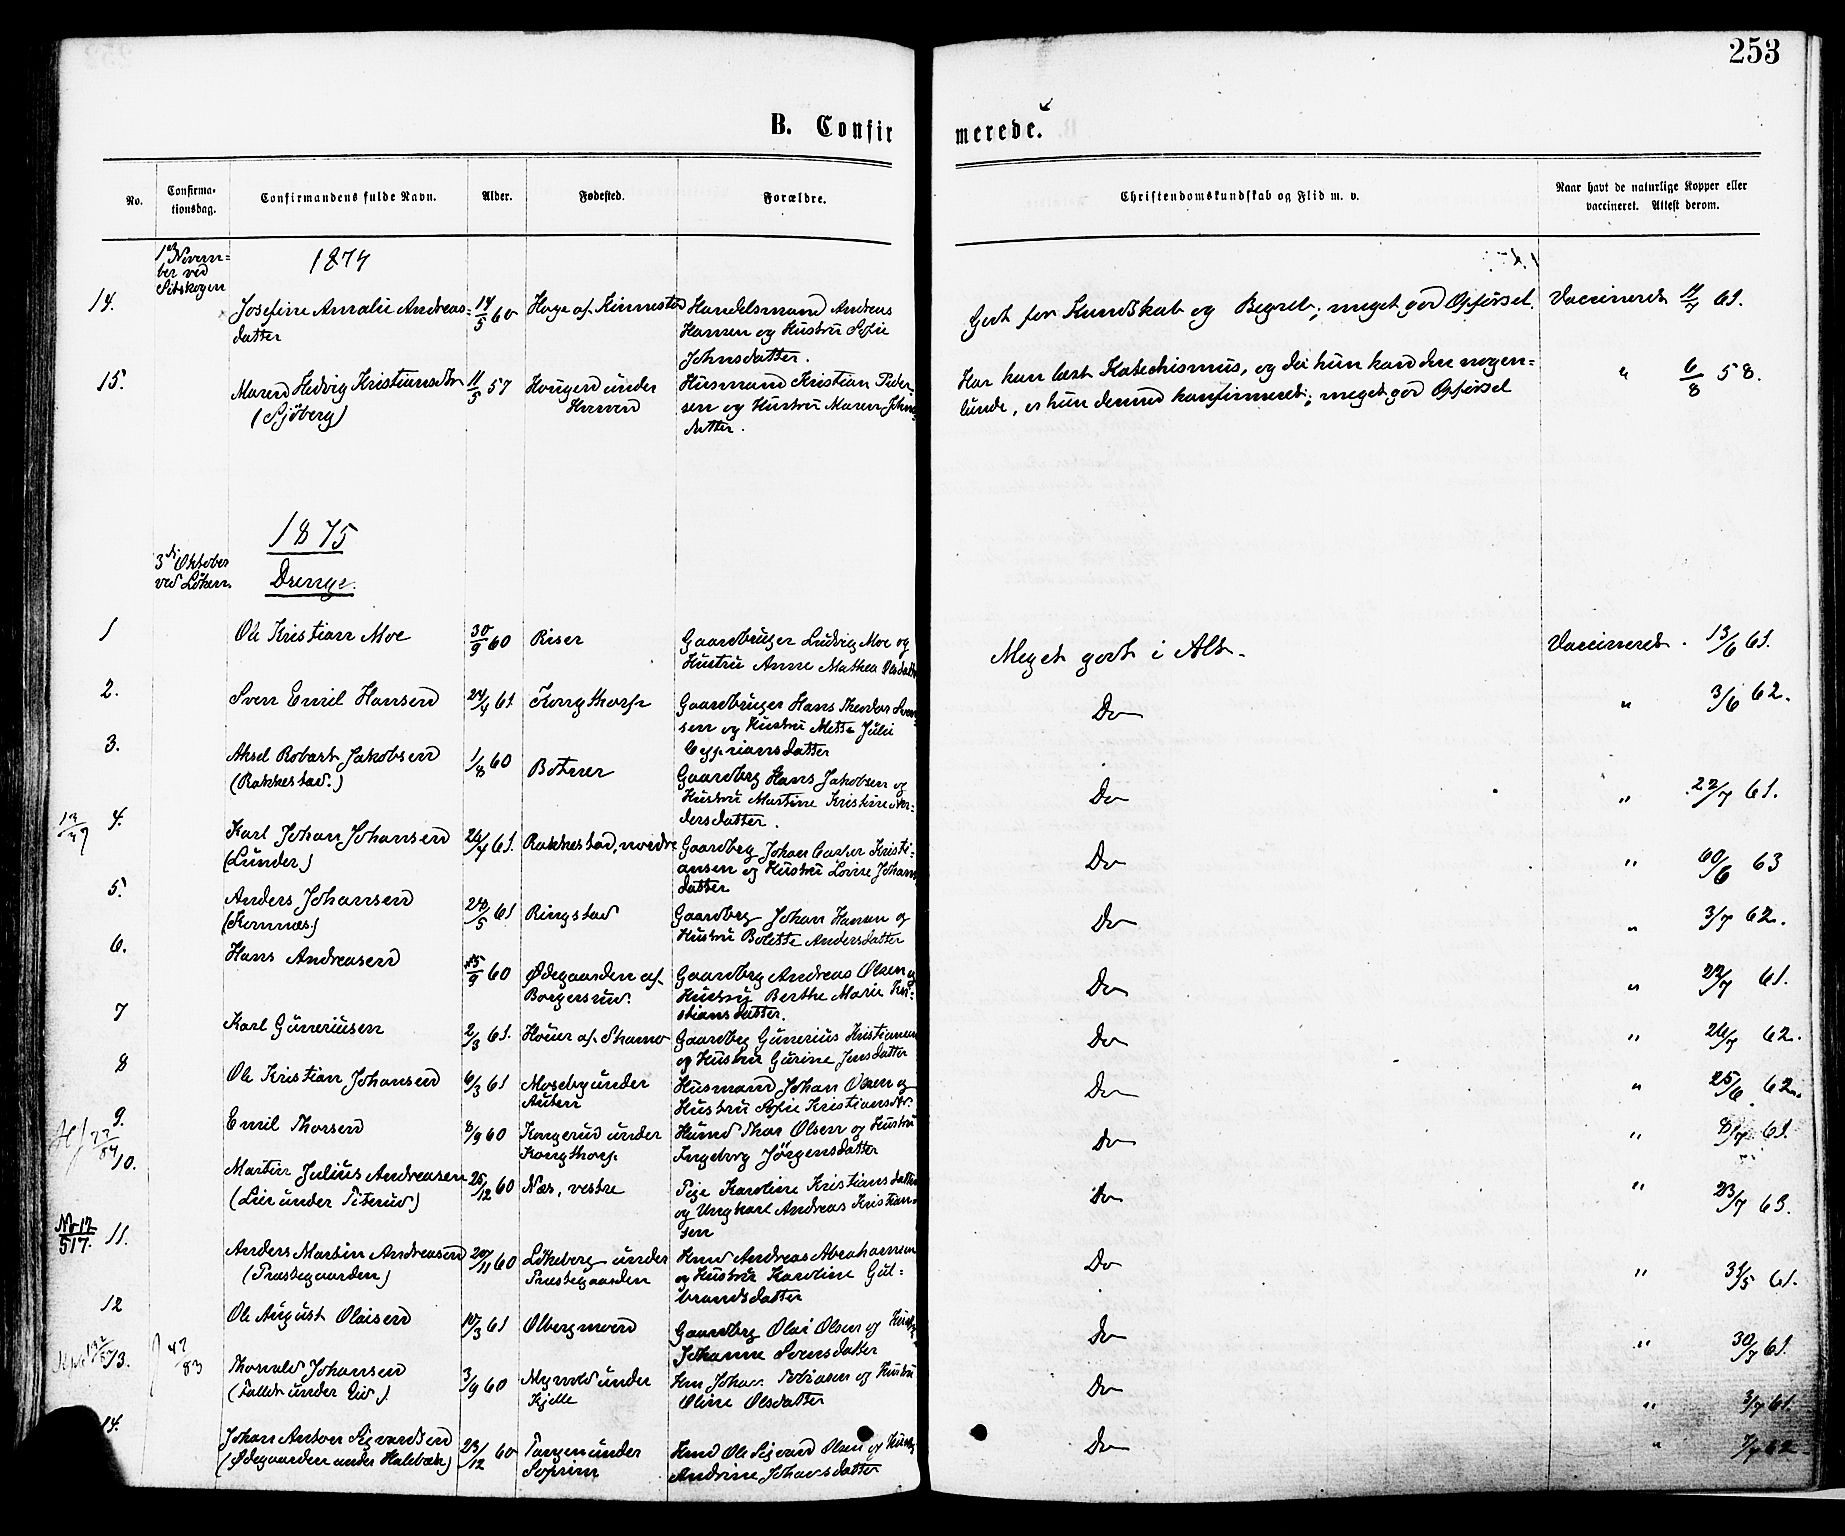 253
B. Confirmerede.
No.
Confirmationsdag.
Confirmandens fulde Navn.
Alder.
Fødested.
Forældre.
Christendomskundskab og Flid m. v.
Naar havt de naturlige Kopper eller
vaccineret. Attest derom.
1874
14.
Josefine Amalie Andreas-
datter
14/5 60
Handelsmand Andreas
Hansen og Hustru Sofie
Johnsdatter.
Godt for Kundskab og Begreb; meget god Opførsel.
Vaccineret
61.
15.
Maren Hedvig Kristiansdtr
(Sjøberg)
11/5 57
Husmand Kristian Peder-
sen og Hustru Maren Johns-
datter.
Har kun læst Katechismus, og da hun kan den nogen-
lunde, er hun dermed konfirmeret; meget god Opførsel
" 6/8 58.
1875
3die Oktober
ved Løken
Drenge.
1
Ole Kristian Moe
30/9 60
Riser
Gaardbruger Ludvig Moe og
Hustru Anne Mathea Olsdatter
Meget godt i Alt.
Vaccineret. 13/6 61.
2.
Sven Emil Hansen
24/4 61
Kongthorp
Gaardbruger Hans Theodor Sven-
sen og Hustru Mette Julie
Cypriansdatter
Do
" 3/6 62.
3.
Aksel Robert Jakobsen
(Rakkestad.)
1/8 60
Botner
Gaardbrg Hans Jakobsen og
Hustru Martine Kristine An-
dersdatter.
Do
" 22/7 61.
4.
Karl Johan Johansen
(Lunder)
24/4 61.
Rakkestad, nordre
Gaardbrg Johan Casper Kristi-
ansen og Hustru Lovise Johans-
datter
Do
" 63
5.
Anders Johansen
(Komnæs)
61
Ringstad
Gaardbrg Johan Hansen og
Hustru Bolette Andersdatter
Do
" 3/7 62.
6.
Hans Andreasen
15/9 60
Ødegaarden af
Borgersrud.
Gaardbrg Andreas Olsen og
Hustru Berthe Marie Kri-
stiansdatter.
Do
" 22/7 61.
7
Karl Gunerius​en
2/3 61.
Gaardbrg Gunerius Kristiansen
og Hustru Gurine Jensdatter
Do
" 26/7 62.
8
Ole Kristian Johansen
6/3 61
Moseby under
Husmand Johan Olsen og
Hustru Sofie Kristiansdtr.
Do
" 25/6 62.
9.
Emil Thorsen
8/9 60
Kongerud under
Kongthorp.
Husmd Thor Olsen og Hustru
Ingeborg Jørgensdatter
Do
" 8/7 61.
10.
Martin Julius Andreasen
(Lier under Titerud)
25/12 60
Næs, vestre
Pige Karoline Kristiansdatter
og Ungkarl Andreas Kristian-
sen
Do
" 23/7 63.
No 12
517.
11.
Anders Martin Andreasen
(Præstegaarden)
20/11 60
Løkeberg under
Præstegaarden
Hmd Andreas Abrahamsen
og Hustru Karoline Gul-
brandsdatter
Do
" 31/5 61.
12
Ole August Olaisen
10/3 61
Ølbergmoen
Gaardbrg Olai Olsen og Hustru
Johanne Svensdatter
Do
" 30/7 61.
13.
Thorvald Johansen
3/9 60
Myrvold under
Kjelle
Hm Johan Tobiasen og Hustru
Oline Olsdatter
Do
" 3/7 61.
14.
Johan Anton Sigvardsen
(Ødegaarden under Halebæk)
23/12 60
Tangen under
Hmd Ole Sigvard Olsen og Hustru
Andrine Johansdatter
Do
" 7/7 62.